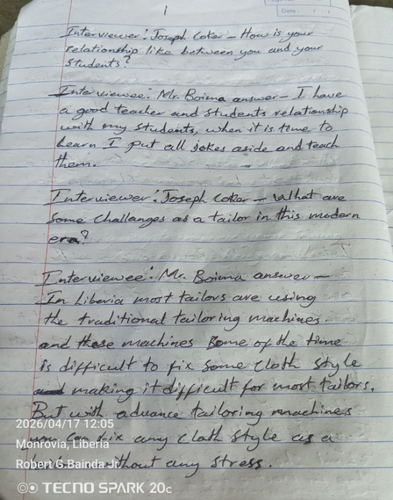 Date:
1
Interviewer: Joseph Coker - How is your
relationship like between you and your
students?
Interviewee: Mr. Boima answer - I have
a good teacher and students relationship
with my students, when it is time to
learn I put all jokes aside and teach
them.
Interviewer: Joseph Coker - What are
some challanges as a tailor in this modern
era?
Interviewee: Mr. Boima answer -
In Liberia most tailors are using
the traditional tailoring machines.
and those machines some of the time
is difficult to fix some cloth style
making it difficult for most tailors.
But with advance tailoring machines
fix any cloth style as a
without any stress.
2026/04/17 12:05
Monrovia, Liberia
Robert G.Bainda Jr.
TECNO SPARK 20c